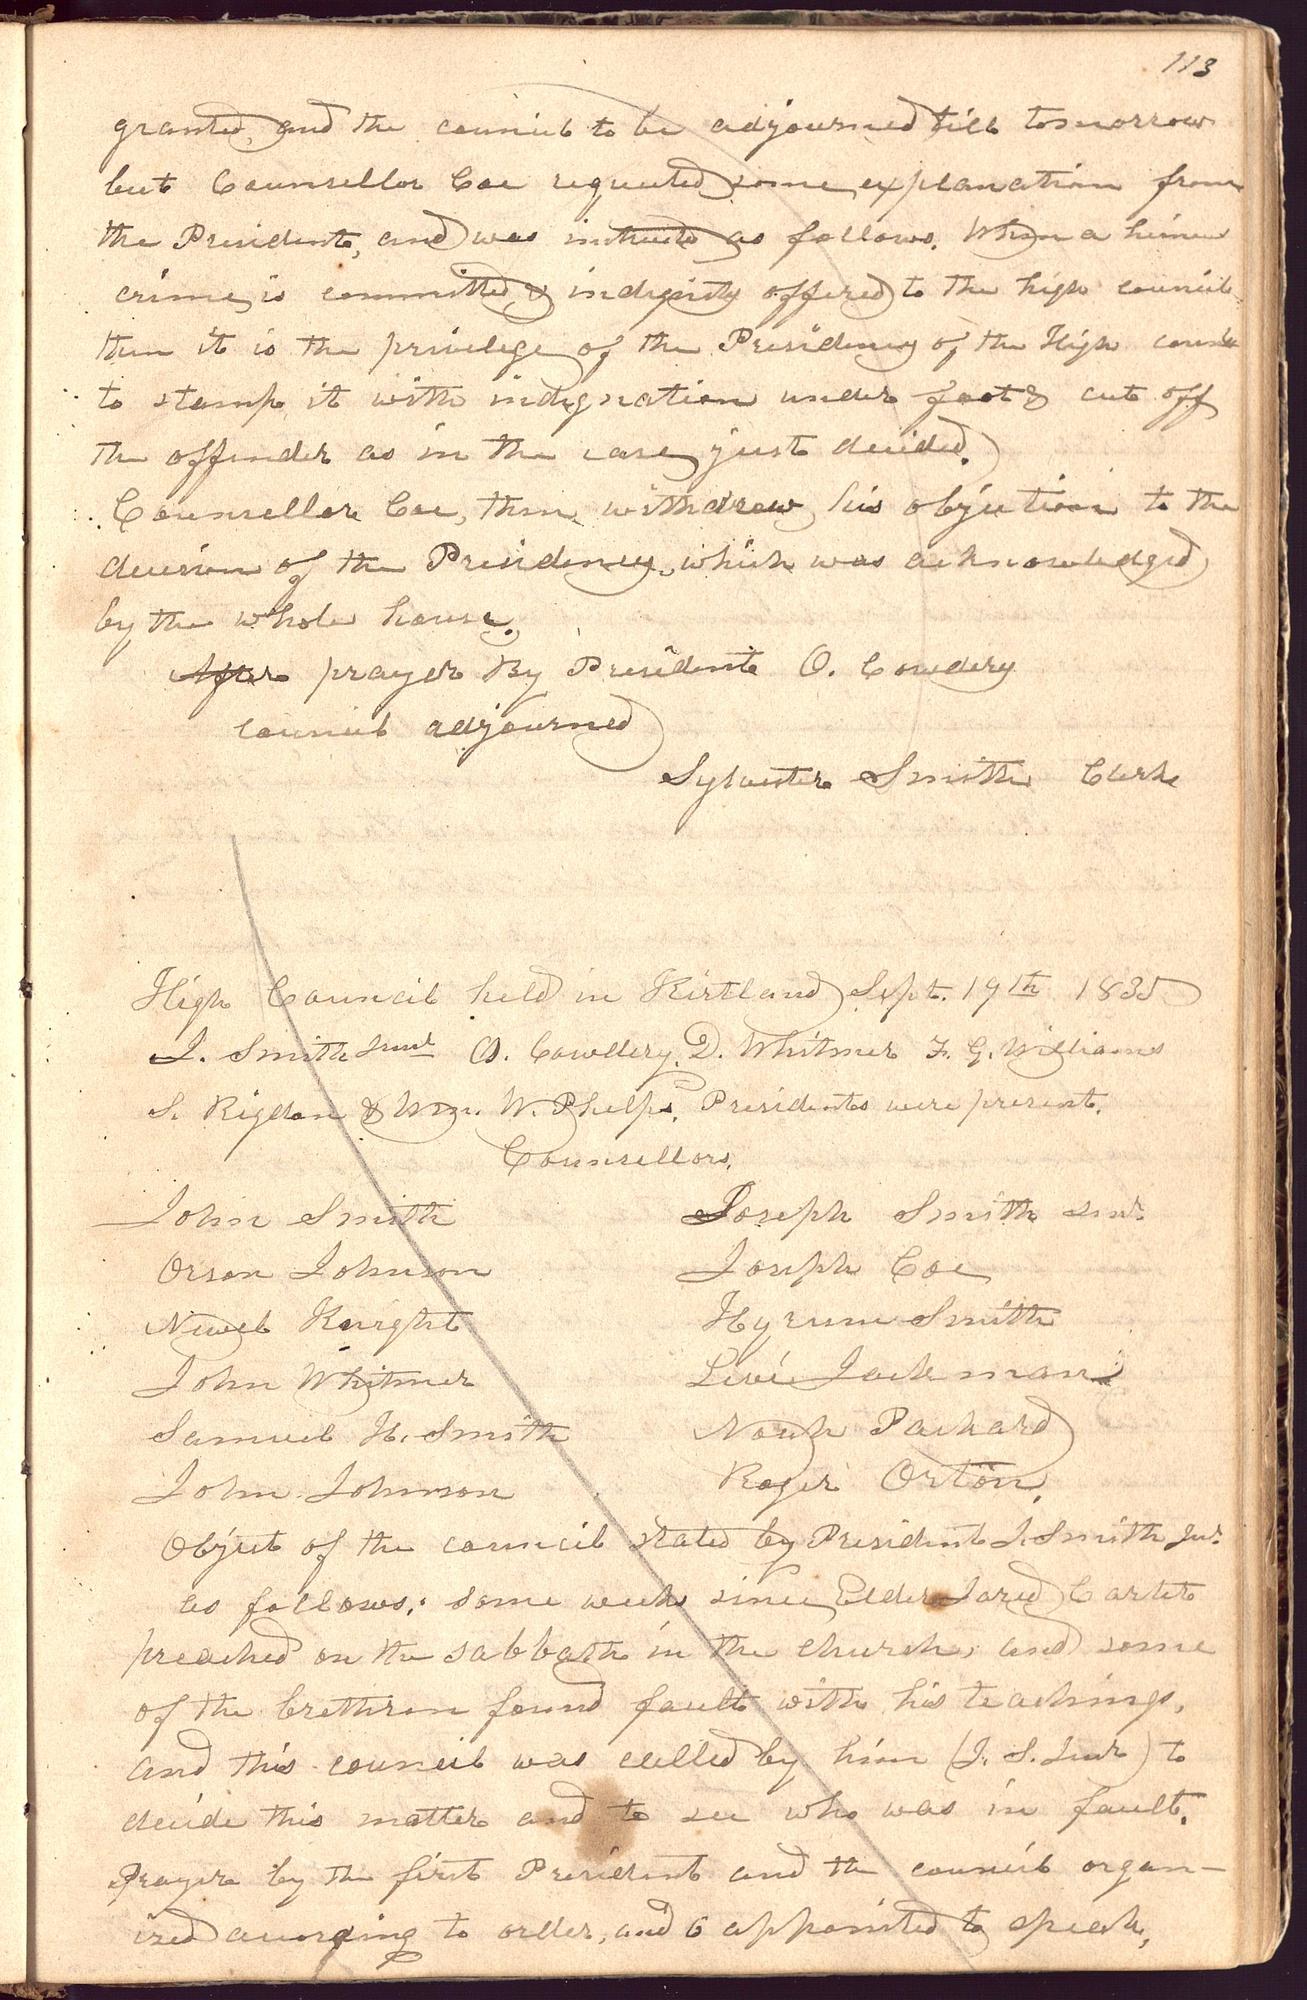 113
granted, and the council to be adjourned till tomorrow
but Counsellor Coe requested some explanation from
the Presidents, and was instructed as follows. When a heinus
crime is committed & indignity offered to the high council
then it is the privilege of the Presidency of the High council
to stamp it with indignation under foot & cut off
the offender as in the case just decided.
Counsellor Coe, then withdrew his objection to the
decision of the Presidency, which was acknowledged
by the whole house.
After prayer By President O. Cowdery
council adjourned
Sylvester Smith Clerk
High Council held in Kirtland Sept. 19th 1835
J. Smith Junr O. Cowdery, D. Whitmer F. G. Williams
S. Rigdon & Wm. W. Phelps, Presidents were present.
Counsellors.
John Smith Joseph Smith snr.
Orson Johnson Joseph Coe
Newel Knight Hyrum Smith
John Whitmer Levi Jackman
Samuel H. Smith Noah Packard
John Johnson Roger Orton.
Object of the council stated by President J. Smith Jur.
as follows: some weeks since Elder Jared Carter
preached on the sabbath in the church, and some
of the brethren found fault with his teachings,
and this council was called by him (J. S. Junr) to
decide this matter and to see who was in fault.
Prayer by the first President and the council organ-
ized according to order, and 6 appointed to speak,